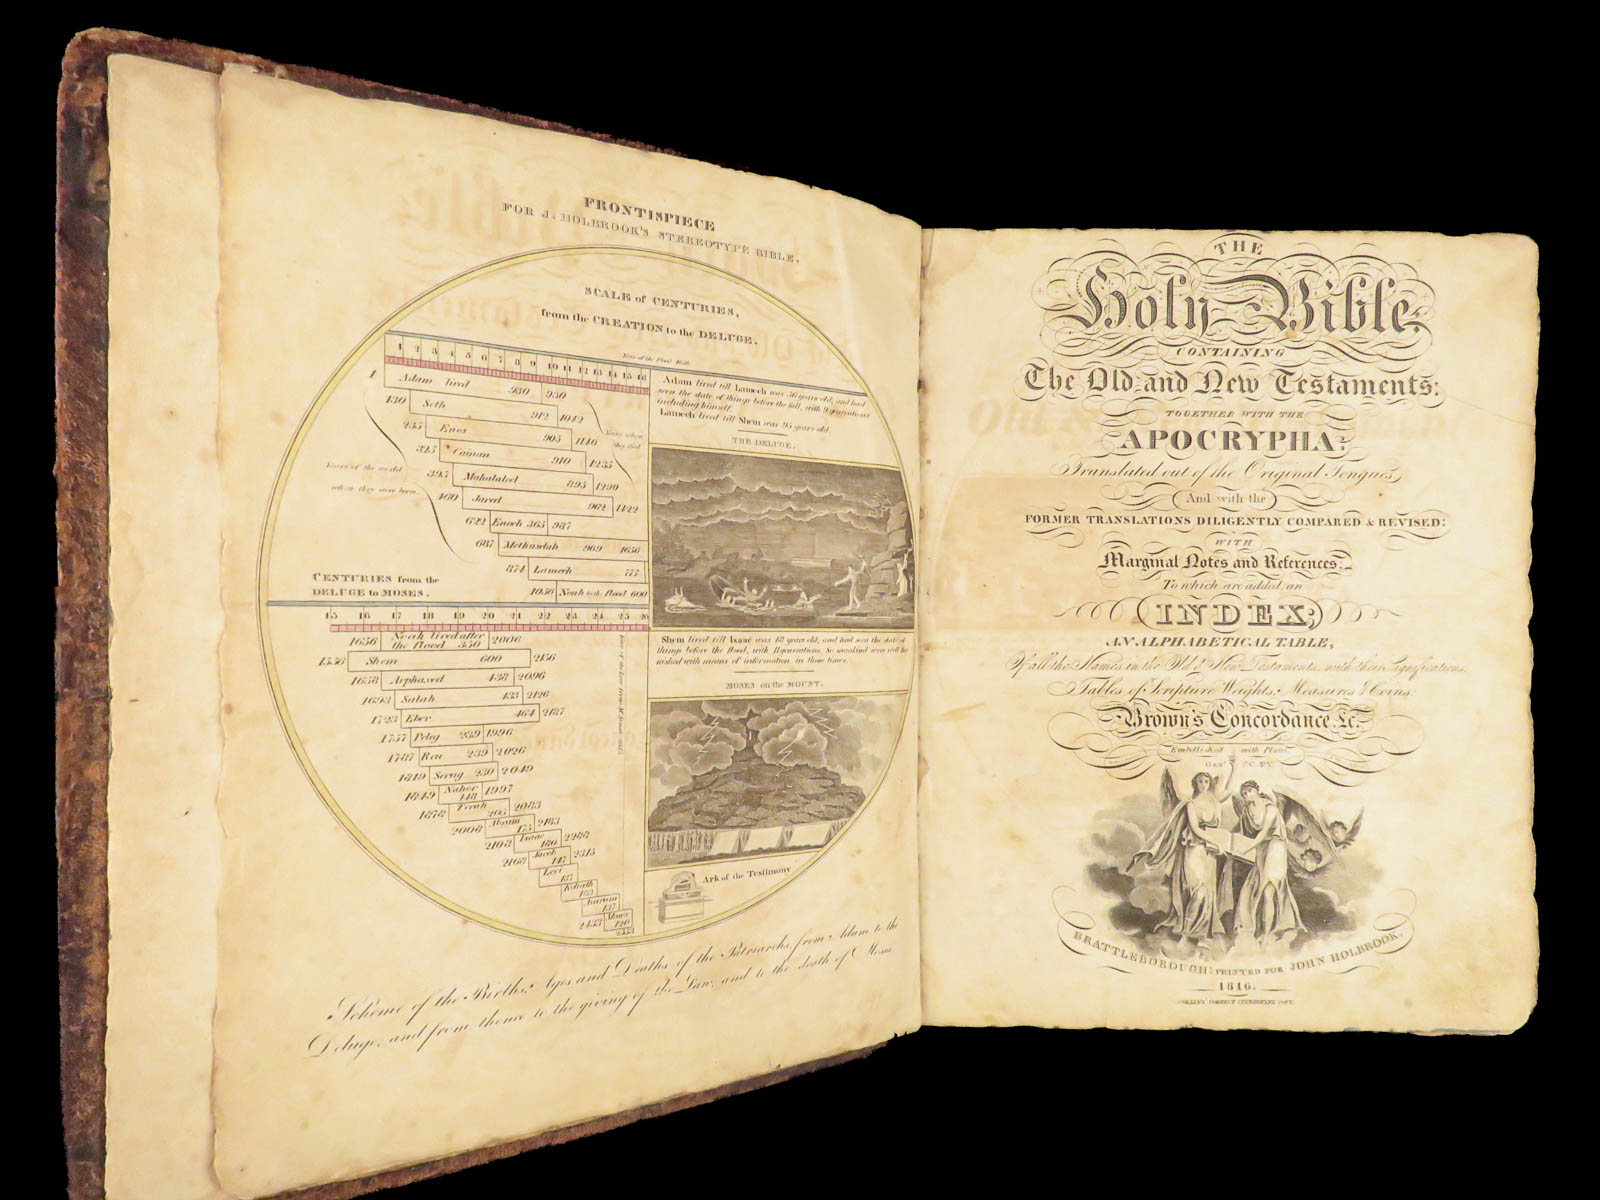 FRONTISPIECE
FOR J. HOLBROOK'S STEREOTYPE BIBLE.
SCALE of CENTURIES,
from the CREATION to the DELUGE.
1 2 3 4 5 6 7 8 9 10 11 12 13 14 15 16
1 Adam lived 930 930
130 Seth 912 1042
235 Enos 905 1140
325 Cainan 910 1235
395 Mahalaleel 895 1290
460 Jared 962 1422
622 Enoch 365 987
687 Methuselah 969 1656
874 Lamech 777
1056 Noah to the flood 600
Years of the world
when they were born
Years when
they died
Adam lived till Lamech was 56 years old, and had
seen the state of things before the fall, with 9 generations
including himself.
Lamech lived till Shem was 95 years old.
THE DELUGE.
CENTURIES from the
DELUGE to MOSES.
15 16 17 18 19 20 21 22 23 24 25 26
1656 Noah lived after the flood 350 2006
1556 Shem 600 2156
1658 Arphaxed 438 2096
1693 Salah 433 2126
1723 Eber 464 2187
1757 Peleg 239 1996
1787 Reu 239 2026
1819 Serug 230 2049
1849 Nahor 148 1997
1878 Terah 205 2083
2008 Abram 175 2183
2108 Isaac 180 2288
2168 Jacob 147 2315
Levi 137
Kohath 133
Amram 137
2433 Moses 120 2553
Shem lived till Isaac was 48 years old, and had seen the state of
things before the flood, with 11 generations. So mankind were well fur
nished with means of information in those times.
MOSES on the MOUNT.
Ark of the Testimony
Scheme of the Births, Ages and Deaths of the Patriarchs, from Adam to the
Deluge, and from thence to the giving of the Law, and to the death of Moses.
THE
Holy Bible:
CONTAINING
The Old and New Testaments:
TOGETHER WITH THE
APOCRYPHA:
Translated out of the Original Tongues,
And with the
FORMER TRANSLATIONS DILIGENTLY COMPARED & REVISED:
WITH
Marginal Notes and References:
To which are added, an
INDEX;
AN ALPHABETICAL TABLE,
Of all the Names in the Old & New Testaments, with their Significations:
Tables of Scripture Weights, Measures & Coins:
Brown's Concordance &c.
Embellished with Plates
BRATTLEBOROUGH: PRINTED FOR JOHN HOLBROOK.
1816.
COLLINS' CORRECT STEREOTYPE COPY.